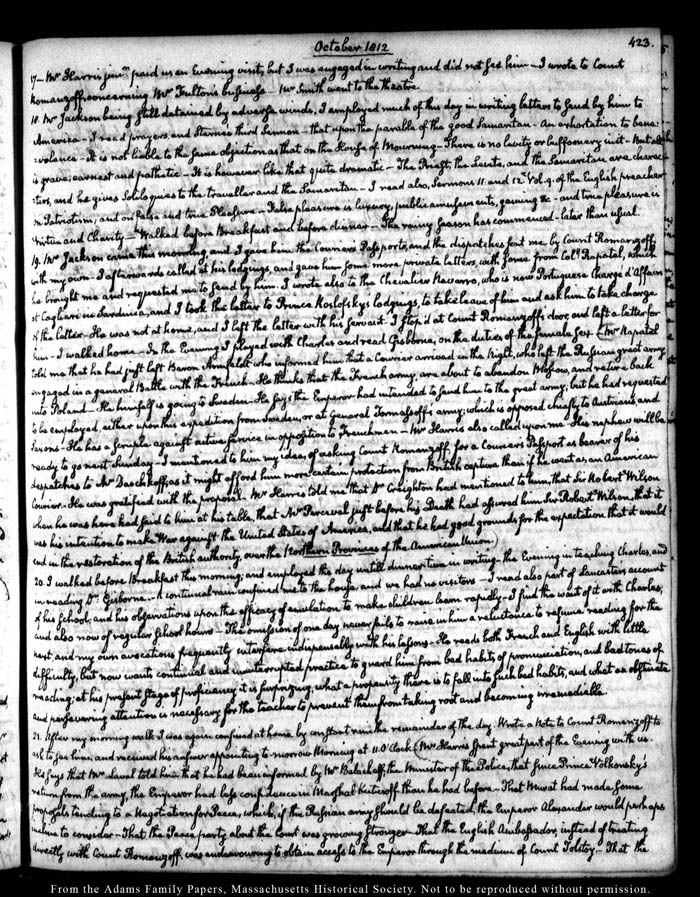 October 1812
423.
17— Mr Harris junr. paid us an Evening visit, but I was engaged in writing and did not see him — I wrote to Count
Romanzoff, concerning Mr Fulton's business — Mr Smith went to the theatre.
18. Mr Jackson being still detained by adverse winds, I employed much of this day in writing letters to send by him to
America — I read prayers, and Sterne's third Sermon — that upon the parable of the good Samaritan — An exhortation to bene:
:volence — It is not liable to the same objection as that on the House of Mourning — There is no levity or buffoonery in it — But all
is grave, earnest and pathetic — It is however like that quite dramatic — The Priest, the Levite, and the Samaritan are charac:
:ters, and he gives Soliloquies to the traveller and the Samaritan — I read also, Sermons 11 and 12. Vol. 9. of the English preacher
on Patriotism, and on False and true Pleasure — False pleasure is luxury, public amusements, gaming &c — and true pleasure is
Virtue and Charity — Walked before Breakfast and before dinner — The rainy season has commenced — later than usual.
19. Mr Jackson came this morning, and I gave him the Courier's Passports, and the dispatches sent me by Count Romanzoff,
with my own — I afterwards called at his lodgings, and gave him some more private letters, with some from Coll. Rapatel, which
he brought me and requested me to send by him. I wrote also to the Chevalier Navarro, who is now Portuguese Chargé d'Affairs
at Cagliari in Sardinia, and I took the letter to Prince Koslofsky's lodgings, to take leave of him and ask him to take charge
of the letter — He was not at home, and I left the letter with his servant. I stop'd at Count Romanzoff's door, and left a letter for
him — I walked home — In the Evening I played with Charles and read Gisborne, on the duties of the female sex — Mr Rapatel
told me that he had just left Baron Armfeldt who informed him that a Courier arrived in the Night, who left the Russian great army
engaged in a general Battle with the French — He thinks that the French army are about to abandon Moscow, and retire back
into Poland — He himself is going to Sweden — He says the Emperor had intended to send him to the great army; but he had requested
to be employed, either upon this expedition from Sweden, or at General Tormasoff's army, which is opposed chiefly to Austrians and
Saxons — He has a scruple against active service in opposition to Frenchmen — Mr Harris also called upon me — His nephew will be
ready to go next Sunday — I mentioned to him my idea, of asking Count Romanzoff, for a Courier's Passport as bearer of his
despatches to Mr Daschkoff, as it might afford him more certain protection from British capture than if he went as an American
Courier — He was gratified with the proposal — Mr Harris told me that Dr Creighton had mentioned to him, that Sir Robert Wilson
when he was here had said to him at his table, that Mr Perceval just before his Death had assured him Sir Robert Wilson, that it
was his intention to make War against the United States of America, and that he had good grounds for the expectation that it would
end in the restoration of the British authority, over the Northern Provinces of the American Union.
20. I walked before Breakfast this morning; and employed the day untill dinner time in writing — the Evening in teaching Charles, and
in reading Dr Gisborne — A continual rain confined me to the house, and we had no visitors — I read also part of Lancaster's account
of his school, and his observations upon the efficacy of emulation to make children learn rapidly — I find the want of it with Charles,
and also now of regular school hours — The omission of one day never fails to raise in him a reluctance to resume reading for the
next, and my own avocations frequently interfere indispensably with his lessons — He reads both French and English with little
difficulty, but now wants continual and uninterrupted practice to guard him from bad habits of pronunciation, and bad tones of
reading; at his present stage of proficiency it is surprizing, what a propensity there is to fall into such bad habits, and what an obstinate
and persevering attention is necessary for the teacher to prevent them from taking root and becoming irremediable
21. After my morning walk I was again confined at home by constant rain the remainder of the day. Wrote a Note to Count Romanzoff to
ask to see him; and received his answer appointing to-morrow Morning at 11. O'Clock. Mr Harris spent great part of the Evening with us.
He says that Mr Laval told him that he had been informed by Mr Balacheff, the Minister of the Police, that since Prince Volkonsky's
return from the army, the Emperor had less confidence in Marshal Kutusoff than he had before — That Murat had made some
proposals tending to a Negotiation for Peace, which, if the Russian army should be defeated, the Emperor Alexander would perhaps
incline to consider — That the Peace party about the Court was growing Stronger — That the English Ambassador, instead of treating
directly with Count Romanzoff, was endeavouring to obtain access to the Emperor through the medium of Count Tolstoy. — That the
From the Adams Family Papers, Massachusetts Historical Society. Not to be reproduced without permission.